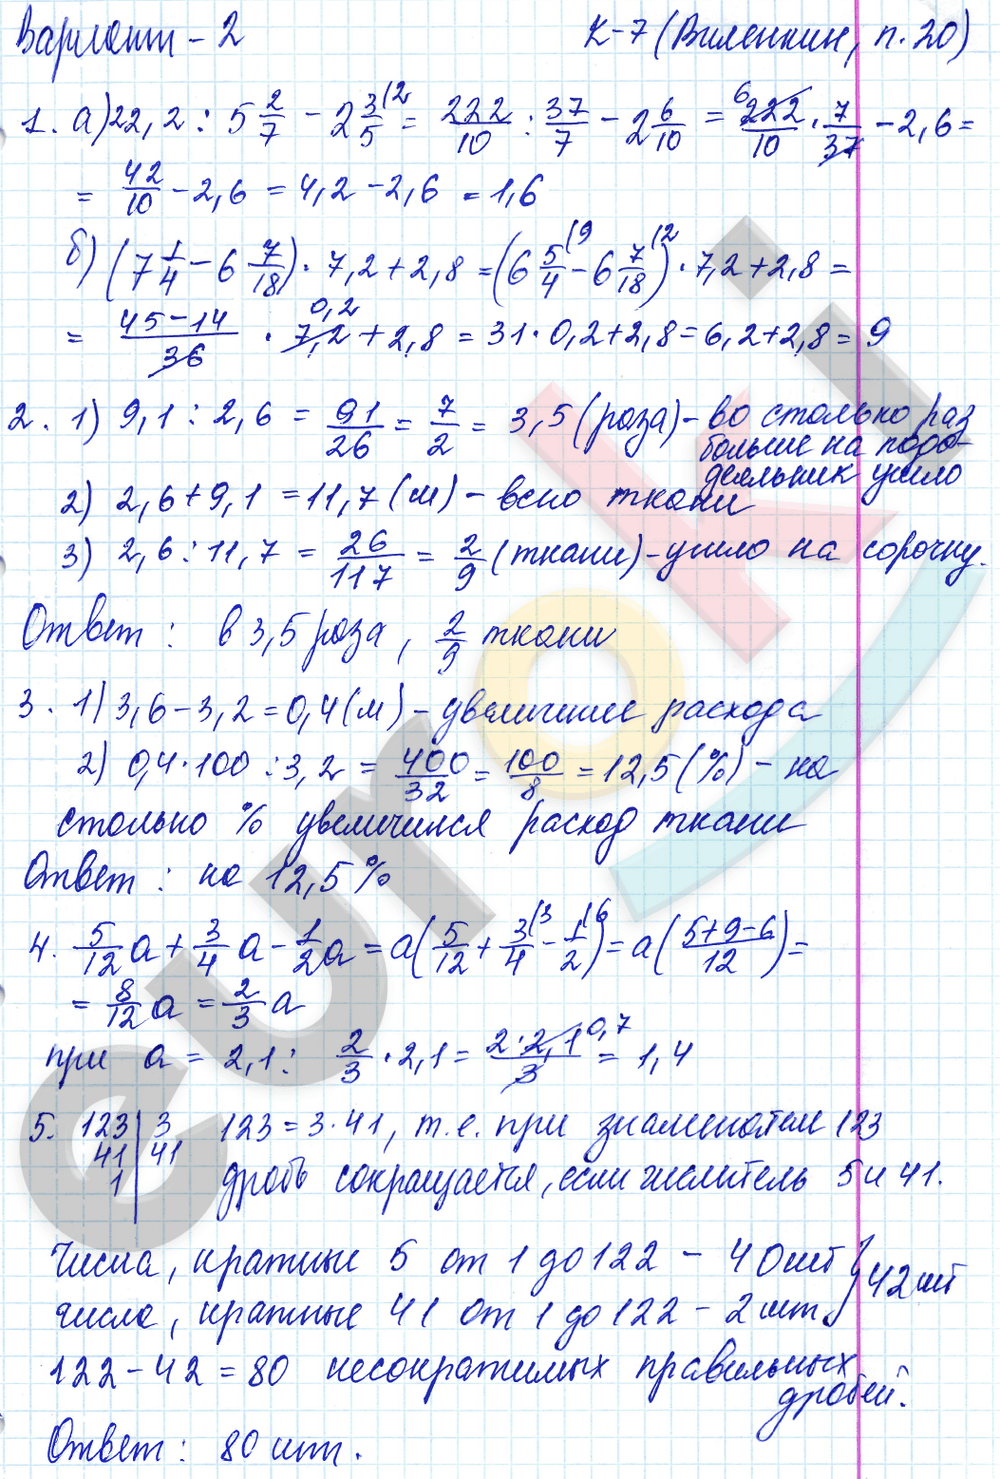 Вариант - 2 К-7 (Виленкин, п.20)
1. а) 22,2 : 5 2/7 - 2 3/5 (2 = 222/10 : 37/7 - 2 6/10 = 6 222/10 · 7/37 - 2,6 =
= 42/10 - 2,6 = 4,2 - 2,6 = 1,6
б) (7 1/4 - 6 7/18) · 7,2 + 2,8 = (6 5/4 (9 - 6 7/18 (2) · 7,2 + 2,8 =
= 45-14/36 · 7,2 0,2 + 2,8 = 31 · 0,2 + 2,8 = 6,2 + 2,8 = 9
2. 1) 9,1 : 2,6 = 91/26 = 7/2 = 3,5 (раза) - во столько раз
больше на подо-
деяльник ушло
2) 2,6 + 9,1 = 11,7 (м) - всего ткани
3) 2,6 : 11,7 = 26/117 = 2/9 (ткани) - ушло на сорочку.
Ответ: в 3,5 раза, 2/9 ткани
3. 1) 3,6 - 3,2 = 0,4 (м) - увеличение расхода
2) 0,4 · 100 : 3,2 = 400/32 = 100/8 = 12,5 (%) - на
столько % увеличился расход ткани
Ответ: на 12,5 %
4. 5/12 a + 3/4 a - 1/2 a = a(5/12 + 3/4 (3 - 1/2 (6) = a(5+9-6/12) =
= 8/12 a = 2/3 a
при a = 2,1: 2/3 · 2,1 = 2 · 2,1 0,7/3 = 1,4
5. 123 | 3 123 = 3 · 41, т.е. при знаменателе 123
41 | 41 дробь сокращается, если числитель 5 и 41.
1 |
Числа, кратные 5 от 1 до 122 - 40 шт } 42 шт
числа, кратные 41 от 1 до 122 - 2 шт.
122 - 42 = 80 несократимых правильных
дробей.
Ответ: 80 шт.
euroki